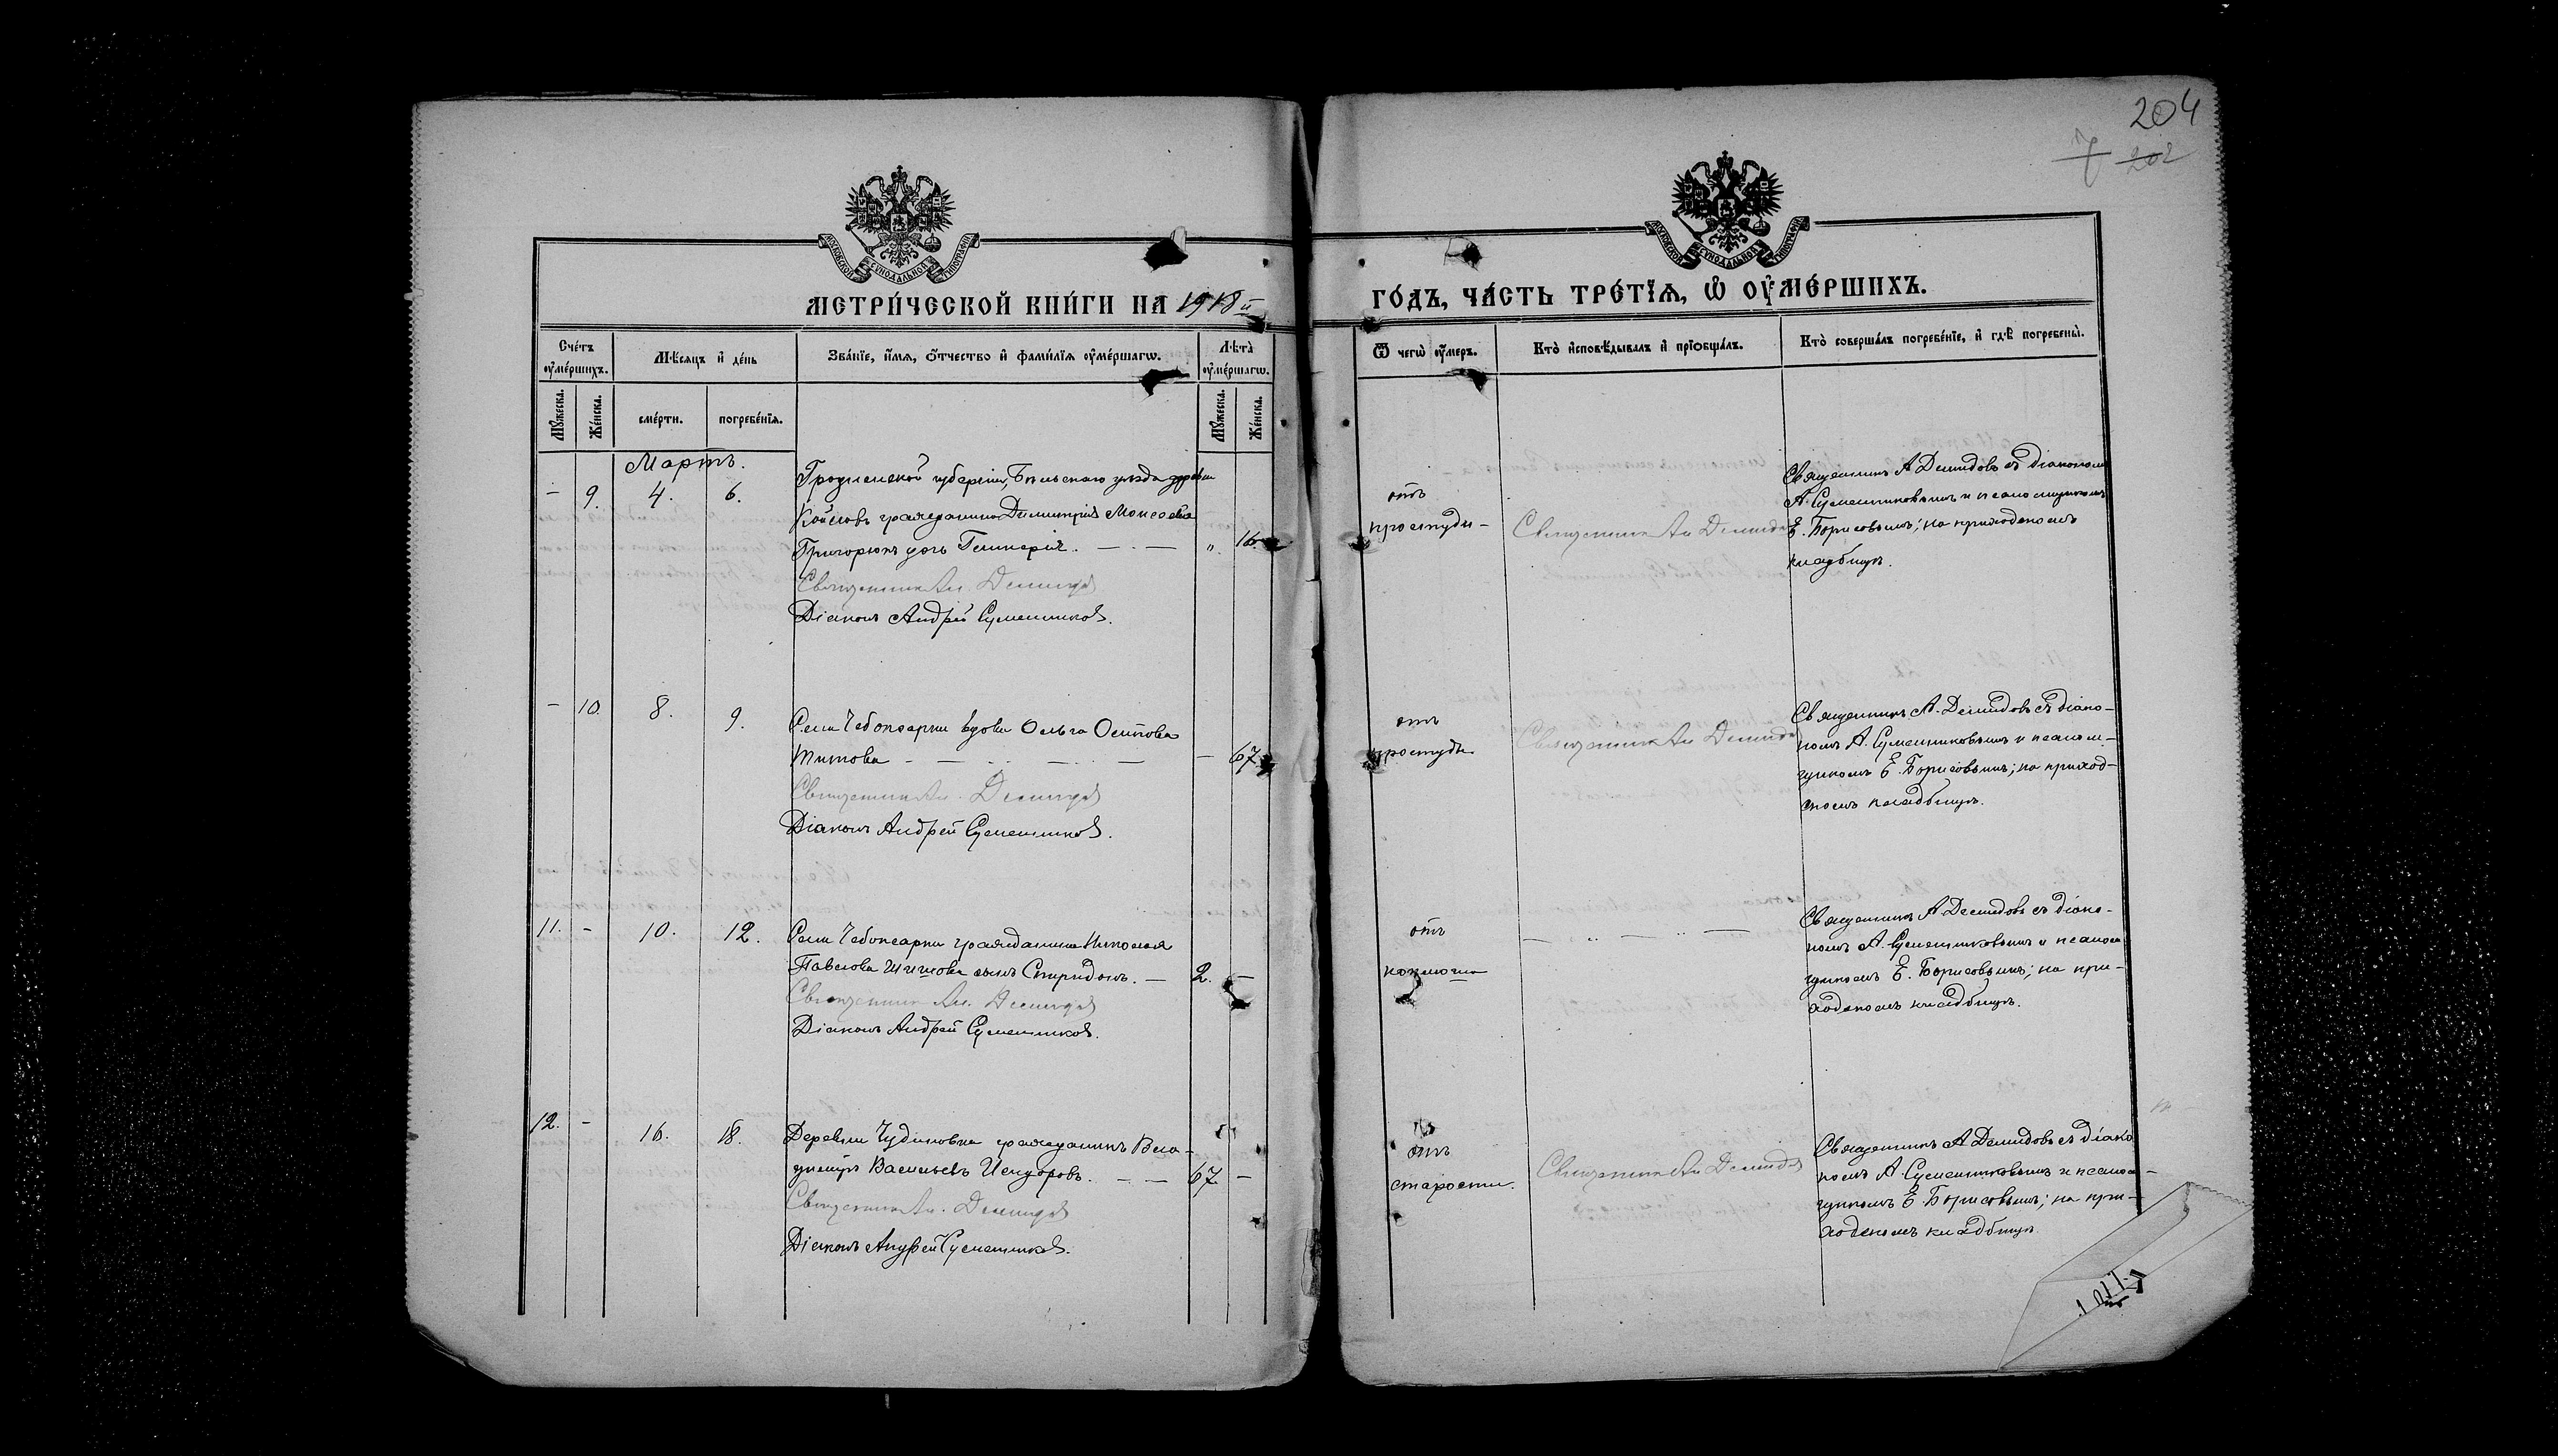 204
7 202
МОСКОВСКОЙ СѴНОДАЛЬНОЙ ТИПОГРАФІИ
МОСКОВСКОЙ СѴНОДАЛЬНОЙ ТИПОГРАФІИ
МЕТРИ́ЧЕСКОЙ КНИ́ГИ НА 1918й
ГО́ДЪ, ЧА́СТЬ ТРЕ́ТІѦ, Ѡ҆ ОУ҆МЕ́РШИХЪ.
Сче́тъ оу҆ме́ршихъ.
Мѣ́сяцъ и҆ де́нь
Зва́нїе, и҆́мѧ, ѻ҆́тчество и҆ фами́лїѧ оу҆ме́ршагѡ.
Лѣ́та̀ оу҆ме́ршагѡ.
Ѿ чегѡ̀ оу҆́меръ.
Кто̀ и҆сповѣ́дывалъ и҆ прїѡбща́лъ.
Кто̀ соверша́лъ погребе́нїе, и҆ гдѣ̀ погребены̀.
Мꙋ́жеска.
Же́нска.
сме́рти.
погребе́нїѧ.
Мꙋ́жеска.
Же́нска.
Мартъ.
- 9. 4. 6.
Гродненской губерніи, Бѣльскаго уѣзда деревни
гражданина Димитрія Моисеева
Григорюкъ дочь Гликерія. — . —
" 16
Священникъ Ал. Демидовъ
Діаконъ Андрей Сумешниковъ.
отъ
простуды
Священникъ Ал Демидовъ
Священникъ А Демидовъ съ діакономъ
А. Сумешниковымъ и псаломщикомъ
Е. Борисовымъ; на приходскомъ
кладбищѣ.
- 10. 8. 9.
Села Чебоксарки вдова Ольга Осипова
Титова
— 67
Священникъ Ал. Демидовъ
Діаконъ Андрей Сумешниковъ.
отъ
простуды
Священникъ Ал Демидовъ
Священникъ А. Демидовъ съ діако-
номъ А. Сумешниковымъ и псалом-
щикомъ Е. Борисовымъ; на приход-
скомъ кладбищѣ.
11. - 10. 12.
Села Чебоксарки гражданина Николая
Павлова Шишова сынъ Спиридонъ. —
2. —
Священникъ Ал. Демидовъ
Діаконъ Андрей Сумешниковъ.
отъ
коклюша
— " — " —
Священникъ А. Демидовъ съ діако-
номъ А. Сумешниковымъ и псалом
щикомъ Е. Борисовымъ; на при-
ходскомъ кладбищѣ.
12. - 16. 18.
Деревни Чудиновка гражданинъ Вла-
диміръ Васильевъ Исидоровъ. — —
67 —
Священникъ Ал. Демидовъ
Діаконъ Андрей Сумешниковъ.
отъ
старости.
Священникъ Ал Демидовъ
Священникъ А Демидовъ съ діако
номъ А. Сумешниковымъ и псалом-
щикомъ Е Борисовымъ; на при-
ходскомъ кладбищѣ.